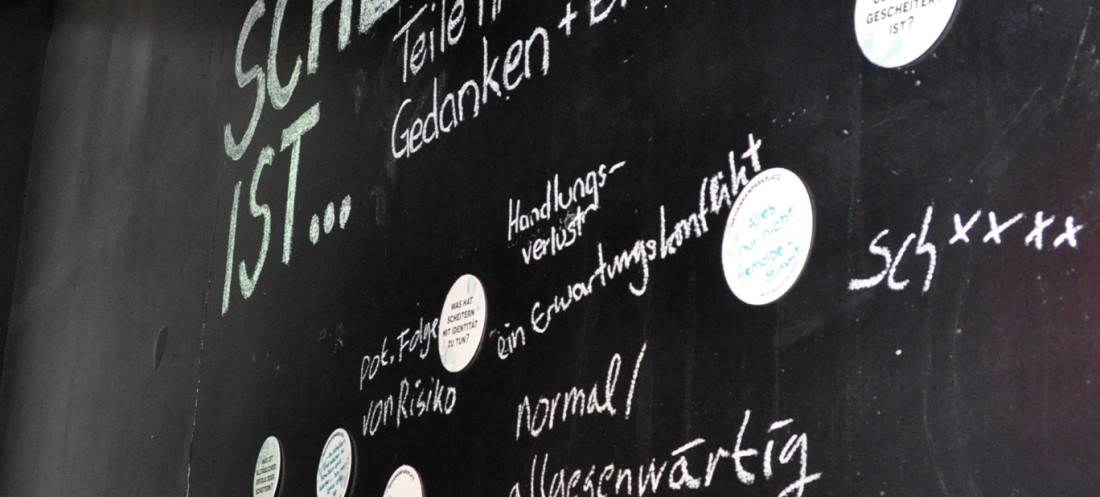 SCHE
IST...
Teile
Gedanken +
GESCHEITERT
IST?
Handlungs-
verlust
ein Erwartungskonflikt
Alles
nur nicht
fremdbe-
stimmt
Schxxxx
WAS HAT
SCHEITERN
MIT IDENTITÄT
ZU TUN?
pot. Folge
von Risiko
normal/
allgegenwärtig